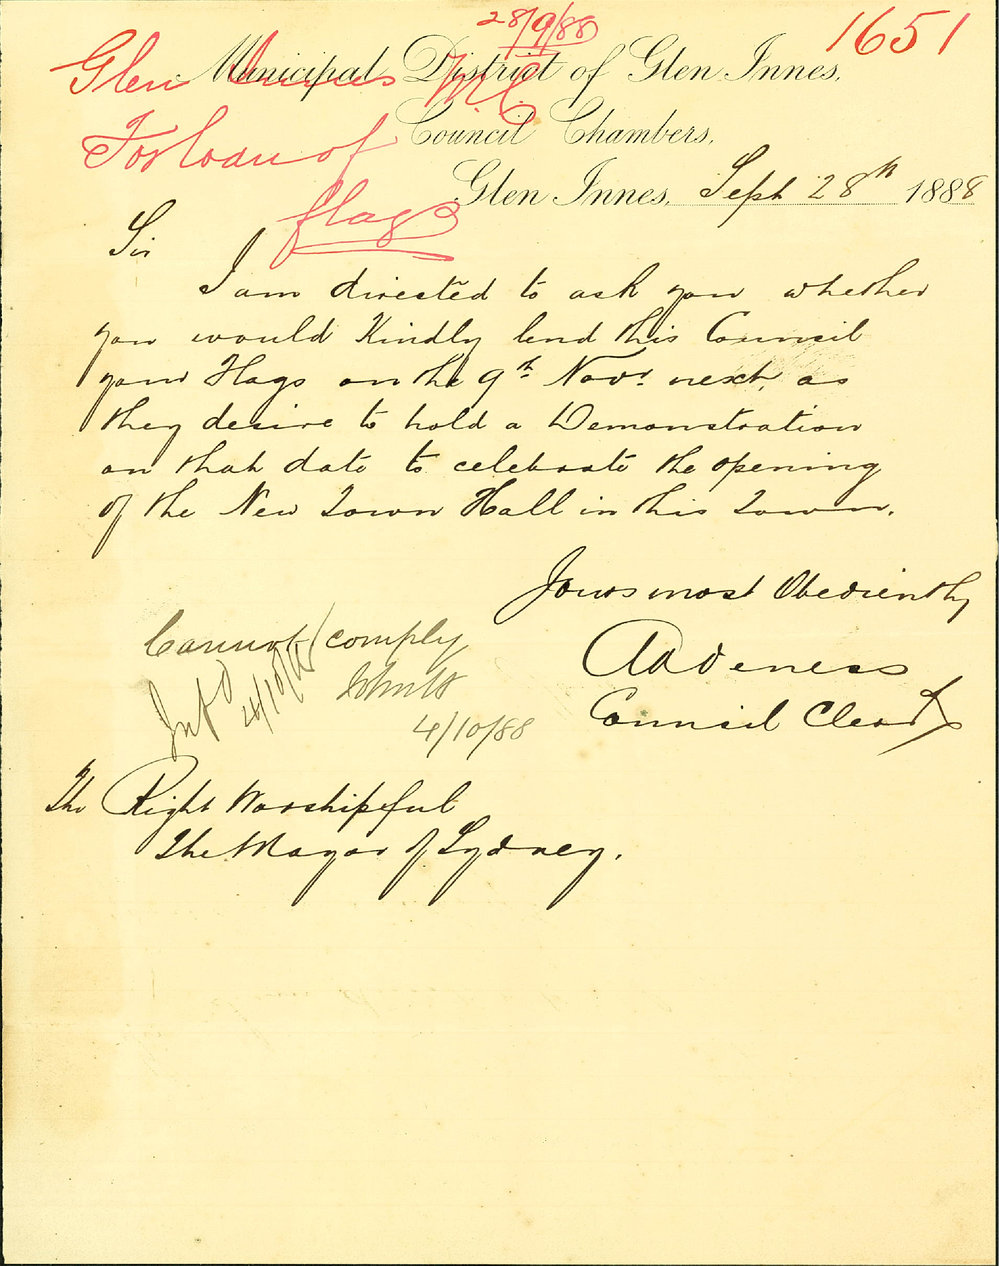 28/9/88
1651
Glen Innes M.C.
For loan of
flags
Municipal District of Glen Innes,
Council Chambers,
Glen Innes, Sept 28th 1888
Sir
I am directed to ask you whether
you would Kindly lend this Council
your Flags on the 9th Novr next, as
they desire to hold a Demonstration
on that date to celebrate the opening
of the New Town Hall in this Town.
Yours most Obediently
Council Clerk
Cannot comply
Infd 4/10/88
4/10/88
The Right Worshipful
The Mayor of Sydney.